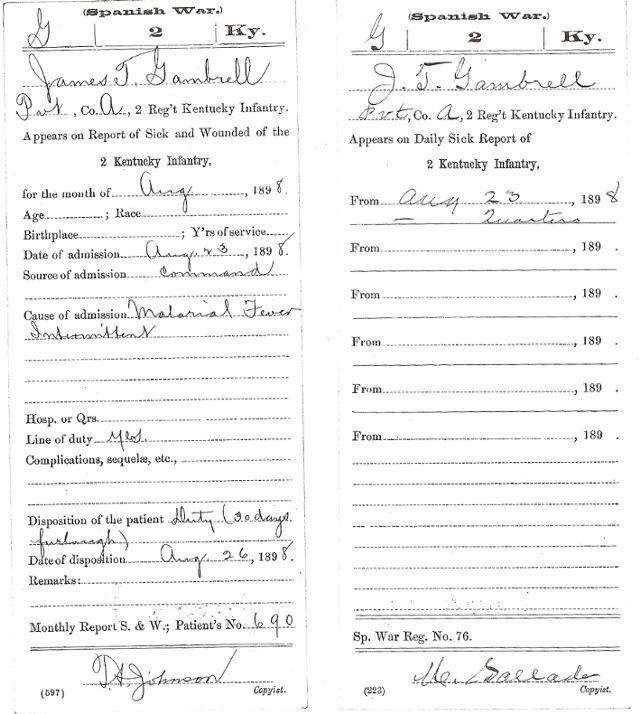 (Spanish War.)
G | 2 | Ky.
James T. Gambrell
Pvt, Co. A, 2 Reg't Kentucky Infantry.
Appears on Report of Sick and Wounded of the
2 Kentucky Infantry,
for the month of Aug, 1898.
Age ; Race
Birthplace ; Y'rs of service
Date of admission Aug 23, 1898.
Source of admission Command
Cause of admission Malarial Fever
Intermittent
Hosp. or Qrs.
Line of duty Yes.
Complications, sequelæ, etc.,
Disposition of the patient Duty (30 days
furlough)
Date of disposition Aug 26, 1898.
Remarks:
Monthly Report S. & W.; Patient's No. 690
Johnson
(597) Copyist.
(Spanish War.)
G | 2 | Ky.
J. T. Gambrell
Pvt, Co. A, 2 Reg't Kentucky Infantry.
Appears on Daily Sick Report of
2 Kentucky Infantry,
From Aug 23, 1898
— Quarters
From , 189 .
From , 189 .
From , 189 .
From , 189 .
From , 189 .
Sp. War Reg. No. 76.
(223) Copyist.